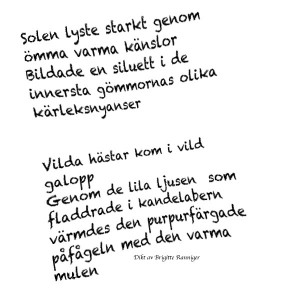 Solen lyste starkt genom
ömma varma känslor
Bildade en siluett i de
innersta gömmornas olika
kärleksnyanser
Vilda hästar kom i vild
galopp
Genom de lila ljusen som
fladdrade i kandelabern
värmdes den purpurfärgade
påfågeln med den varma
mulen
Dikt av Brigitte Ranniger